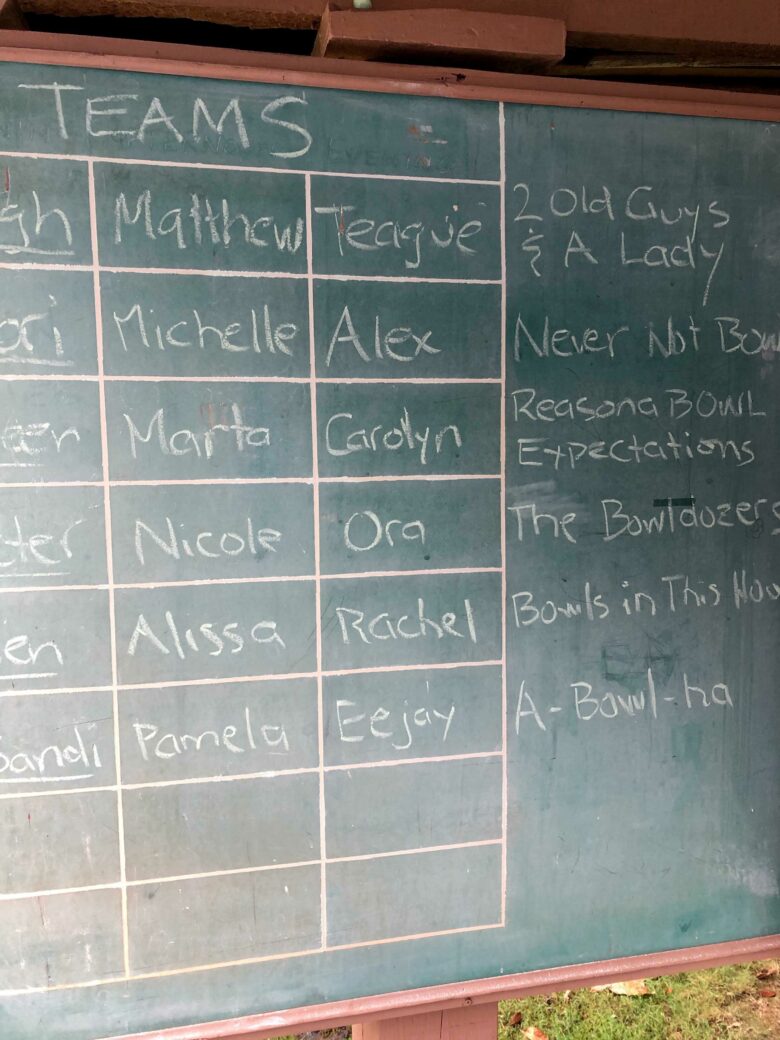 TEAMS
Matthew Teague 2 Old Guys
& A Lady
Michelle Alex Never Not
Marta Carolyn Reasona BOWL
Expectations
Nicole Ora The Bowldozers
Alissa Rachel Bowls in This
Pamela Eejay A-Bowl-ha